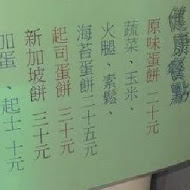 健康餐點
原味蛋餅二十元
蔬菜、玉米、
火腿、素鬆、
海苔蛋餅二十五元
起司蛋餅三十元
新加坡餅三十元
加蛋、起士十元